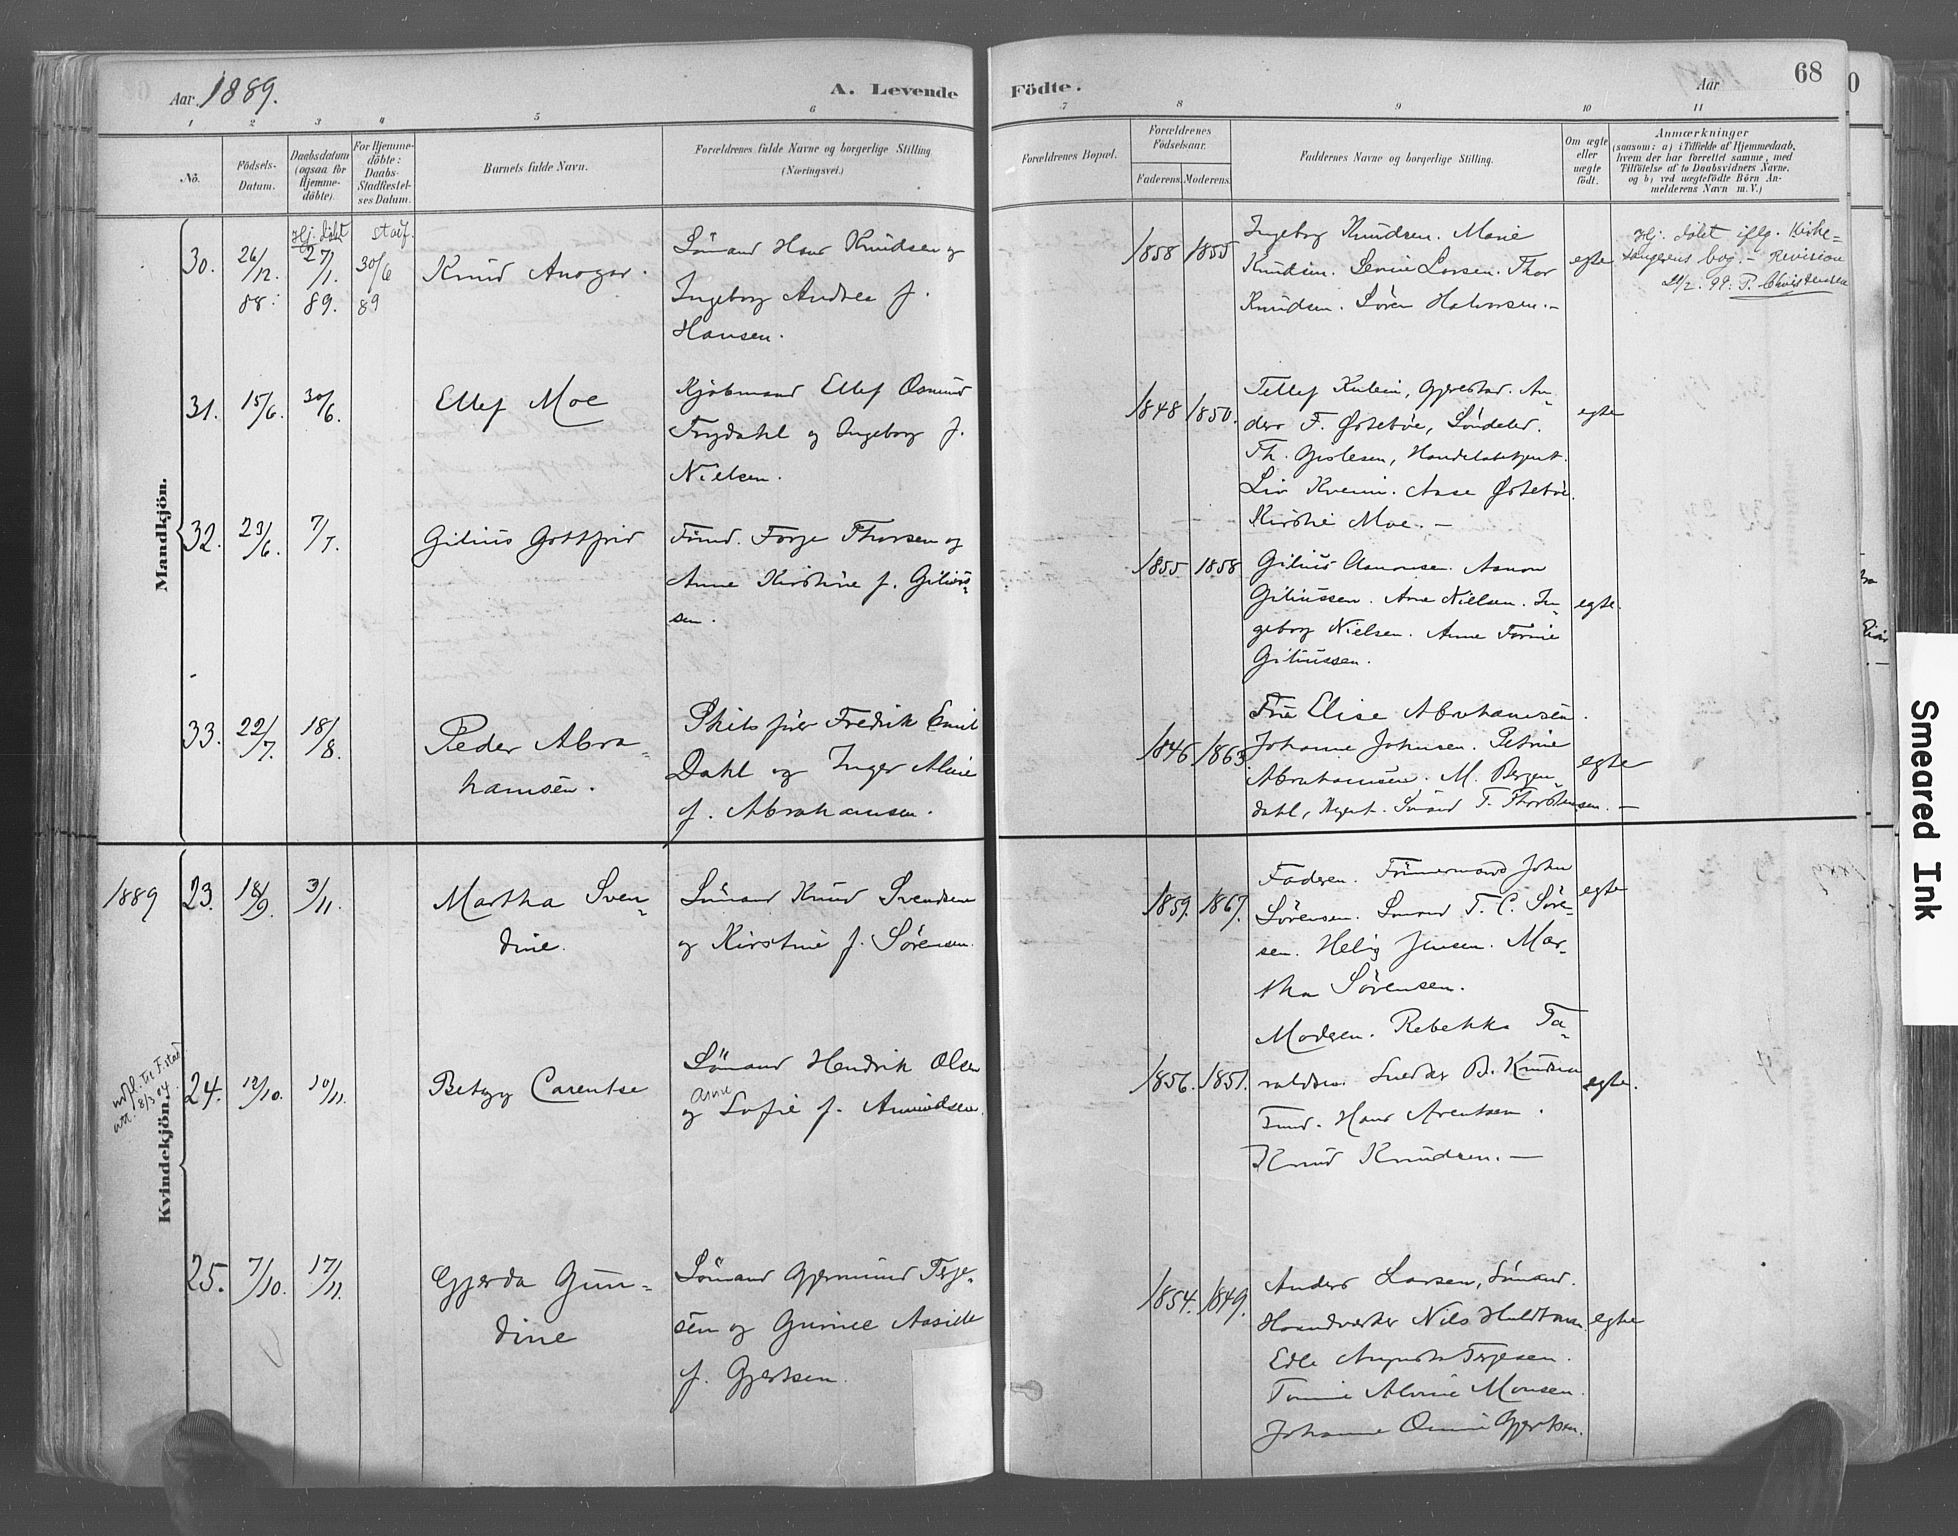 Aar 1889.
A. Levende Födte.
Aar
68
1 2 3 4 5 6 7 8 9 10 11
No.
Födsels-
Datum.
Daabsdatum
(ogsaa for
Hjemme-
döbte).
For Hjemme-
döbte:
Daabs-
Stadfestel-
ses Datum.
Barnets fulde Navn.
Forældrenes fulde Navne og borgerlige Stilling
(Næringsvei.)
Forældrenes Bopæl.
Forældrenes
Födselsaar.
Faderens. Moderens.
Faddernes Navne og borgerlige Stilling.
Om ægte
eller
uægte
födt.
Anmærkninger
(saasom: a) i Tilfælde af Hjemmedaab,
hvem der har forrettet samme, med
Tilföielse af to Daabsvidners Navne,
og b) ved uægtefödte Börn An-
melderens Navn m. V.)
Mandkjön.
30.
26/12.
88.
Hj. döbt
27/1.
89.
stadf.
30/6
89
Knud Ansgar.
Sömand Hans Knudsen og
Ingeborg Andrea f.
Hansen.
1858 1855
Ingeborg Knudsen. Marie
Knudsen. Larsen. Thor
Knudsen. Sören Halvorsen. —
egte
Hj. döbt iflg. Kirke-
sangerens bog. — Revision
P. Christensen
31.
15/6.
30/6.
Ellef Moe
Kjöbmand Ellef Osmund
Frydahl og Ingeborg f.
Nielsen.
1848 1850.
Tellef Gjerestad. An-
ders F. Østeböe, Söndeled.
Th. Gislesen, Handelsbetjent.
Liv Aase Østeböe.
Kirstie Moe. —
egte
32.
23/6.
7/7.
Gilius Gottfrid
Tömd. Terje Thorsen og
Anne Kirstine f. Gilius-
sen.
1855 1858
Gilius Aanonsen. Aanon
Giliussen. Ane Nielsen. In-
geborg Nielsen. Anne Tomine
Giliussen.
egte.
33.
22/7.
18/8.
Peder Abra-
hamsen.
Skibsförer Fredrik Emil
Dahl og Inger Alvine
f. Abrahamsen.
1846 1863
Frue Elise Abrahamsen.
Johanne Johnsen. Petrine
Abrahamsen. M. Bergen-
dahl, Agent. Sömand T. Thorstensen. —
egte
1889
Kvindekjön.
23.
18/9.
3/11.
Martha Sven-
dine.
Sömand Knud Svendsen
og Kirstine f. Sörensen.
1859. 1867.
Faderen. Tömmermand John
Sörensen. Sömand T. C. Sören-
sen. Helig Jensen. Mar-
tha Sörensen.
egte
24.
12/10.
10/11.
Betzy Carentse
Sömand Hendrik Olsen
Anne
og Sofie f. Amundsen.
1856. 1851.
Moderen. Rebekka Ta-
raldsen. B. Knudsen
Tmd. Hans Arentsen.
Knud Knudsen. —
egte.
8/3 04
25.
7/10.
17/11.
Gjerda Gun-
dine
Sömand Gjermund Terje-
sen og Gunnil Aasille
f. Gjertsen.
1854. 1849.
Anders Larsen, Sömand.
Haandverker Nils Huldtman.
Edle Augusta Terjesen.
Tomine Alvine Monsen.
Johanne Gjertsen.
egte
Smeared Ink